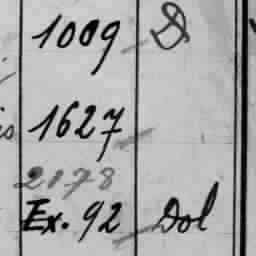 1009 D
is 1627
2078
Ex. 92 Dol